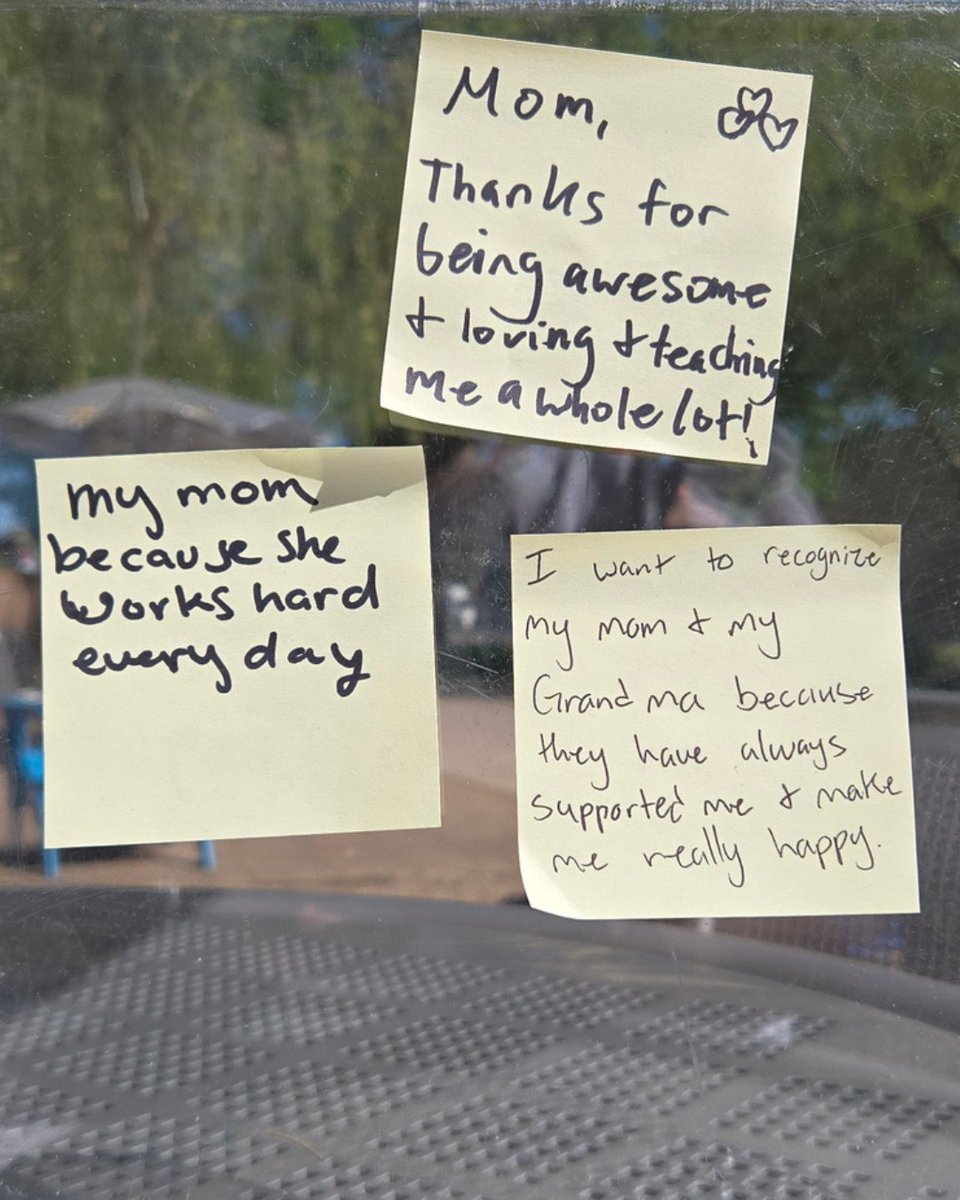 Mom,
Thanks for
being awesome
+ loving + teaching
me a whole lot!
my mom
because she
works hard
every day
I want to recognize
my mom + my
Grandma because
they have always
supported me + make
me really happy.